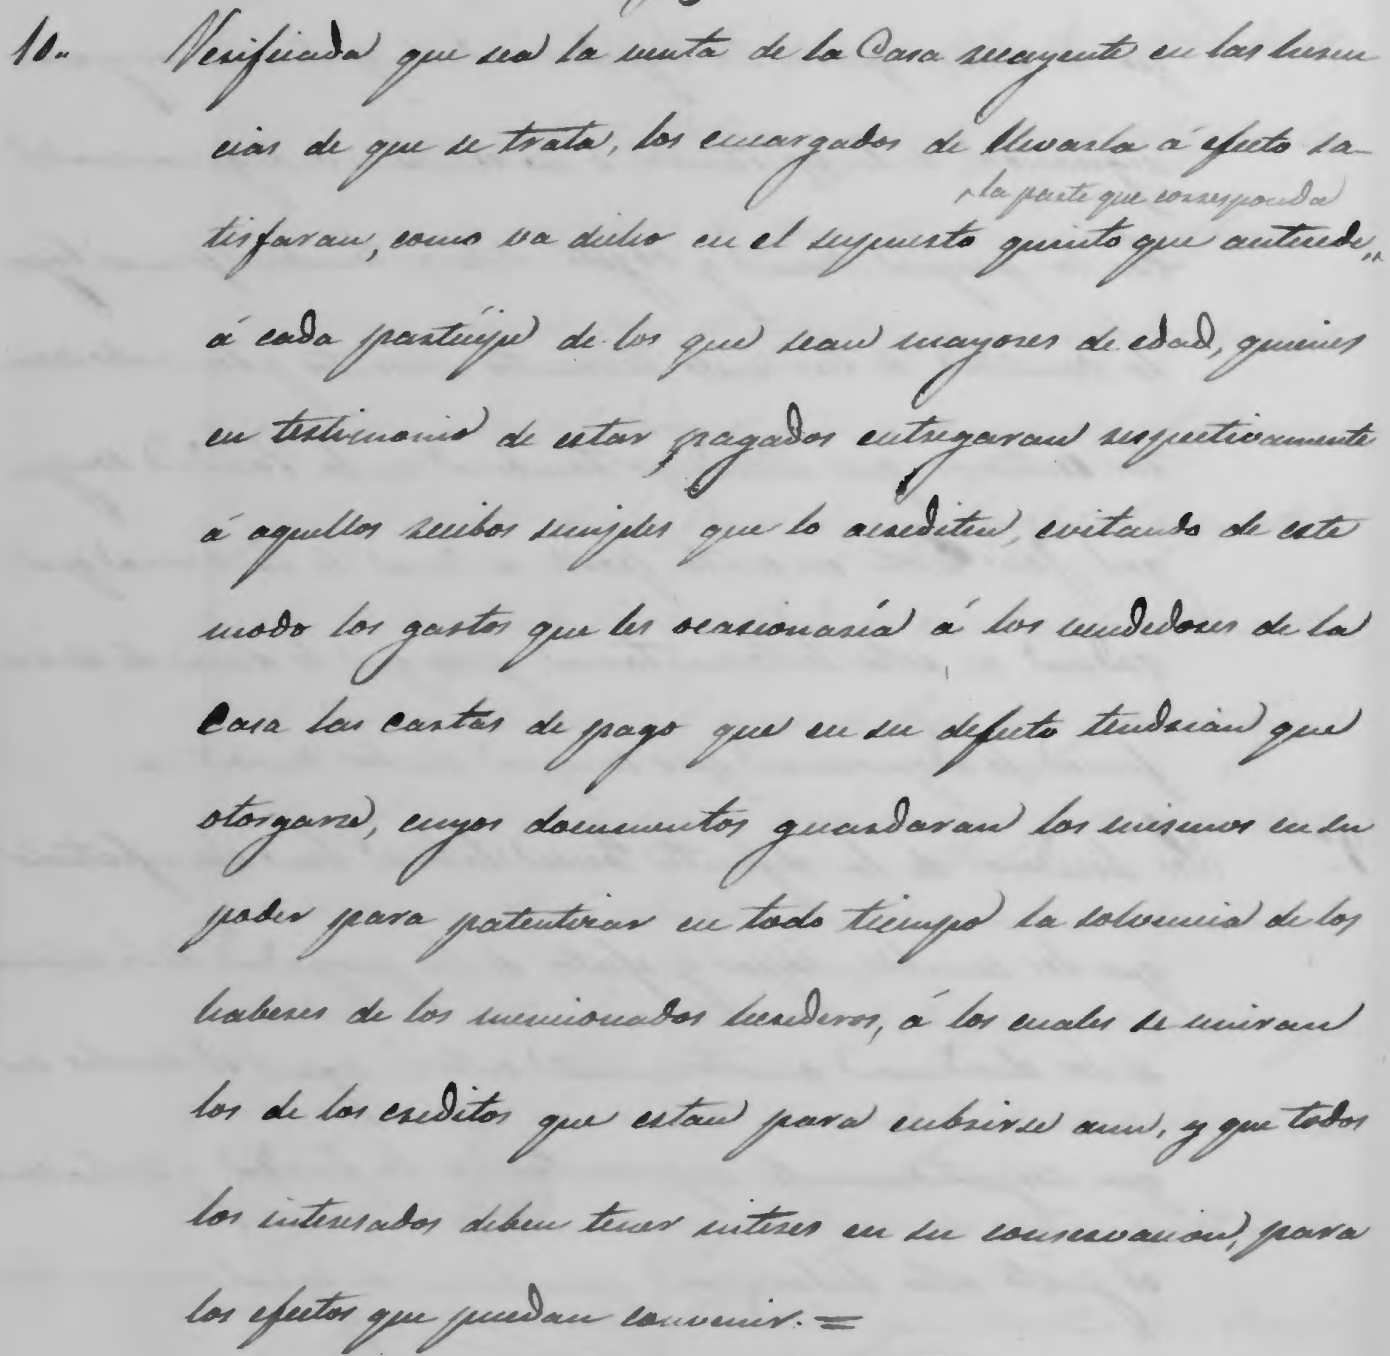 10.. Verificada que sea la venta de la Casa recayente en las heren
cias de que se trata, los encargados de llevarla á efecto sa-
la parte que corresponda
tisfaran, como va dicho en el supuesto quinto que antecede,,
á cada partícipe de los que sean mayores de edad, quienes
en testimonio de estar pagados entregaran respectivamente
á aquellos recibos simples que lo acrediten, evitando de este
modo los gastos que les ocasionaría á los vendedores de la
Casa las cartas de pago que en su defecto tendrian que
otorgarse, cuyos documentos guardaran los mismos en su
poder para patentizar en todo tiempo la solvencia de los
haberes de los mencionados herederos, á los cuales se uniran
los de los creditos que estan para cubrirse aun, y que todos
los interesados deben tener interes en su conservacion, para
los efectos que puedan convenir. =